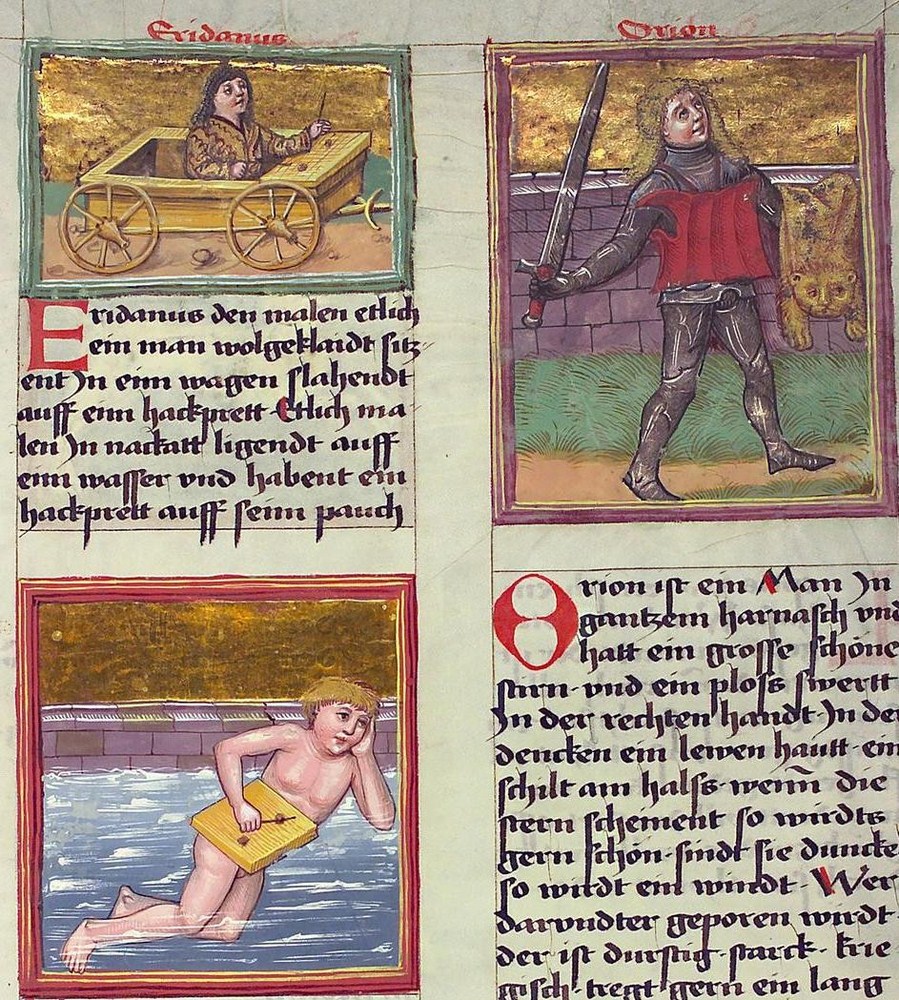 Eridanus
Eridanus den malen etlich
ein man wolgeklaidt sitz
ent Jn eim wagen slahendt
auff eim hackprett Etlich ma
len Jn nackatt ligendt auff
eim wasser vnd habent ein
hackprett auff seim pauch
Orion
Orion ist ein Man Jn
gantzem harnasch vnd
hatt ein grosse schöne
stirn vnd ein ploss swertt
Jn der rechten handt Jn der
dencken ein lewen hautt ein
schilt am halss wenn die
stern scheinent so wirdts
gern schön sindt sie duncke
so wirdt ein windt Wer
darvndter geporen wirdt
der ist durstig starck krie
gisch tregt gern ein lang